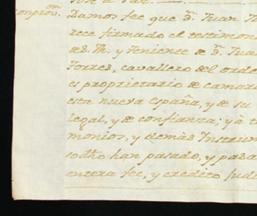 Damos fee que D. Juan
rece firmado el testimon
de S. M. y Teniente de D. Juan
Torres, cavallero del orden
es proprietario de camara
esta nueva españa, y de su
legal, y de confianza; y à t
monios, y demàs Instrum
sodho han pasado, y pasa
entera fee, y credito Judi